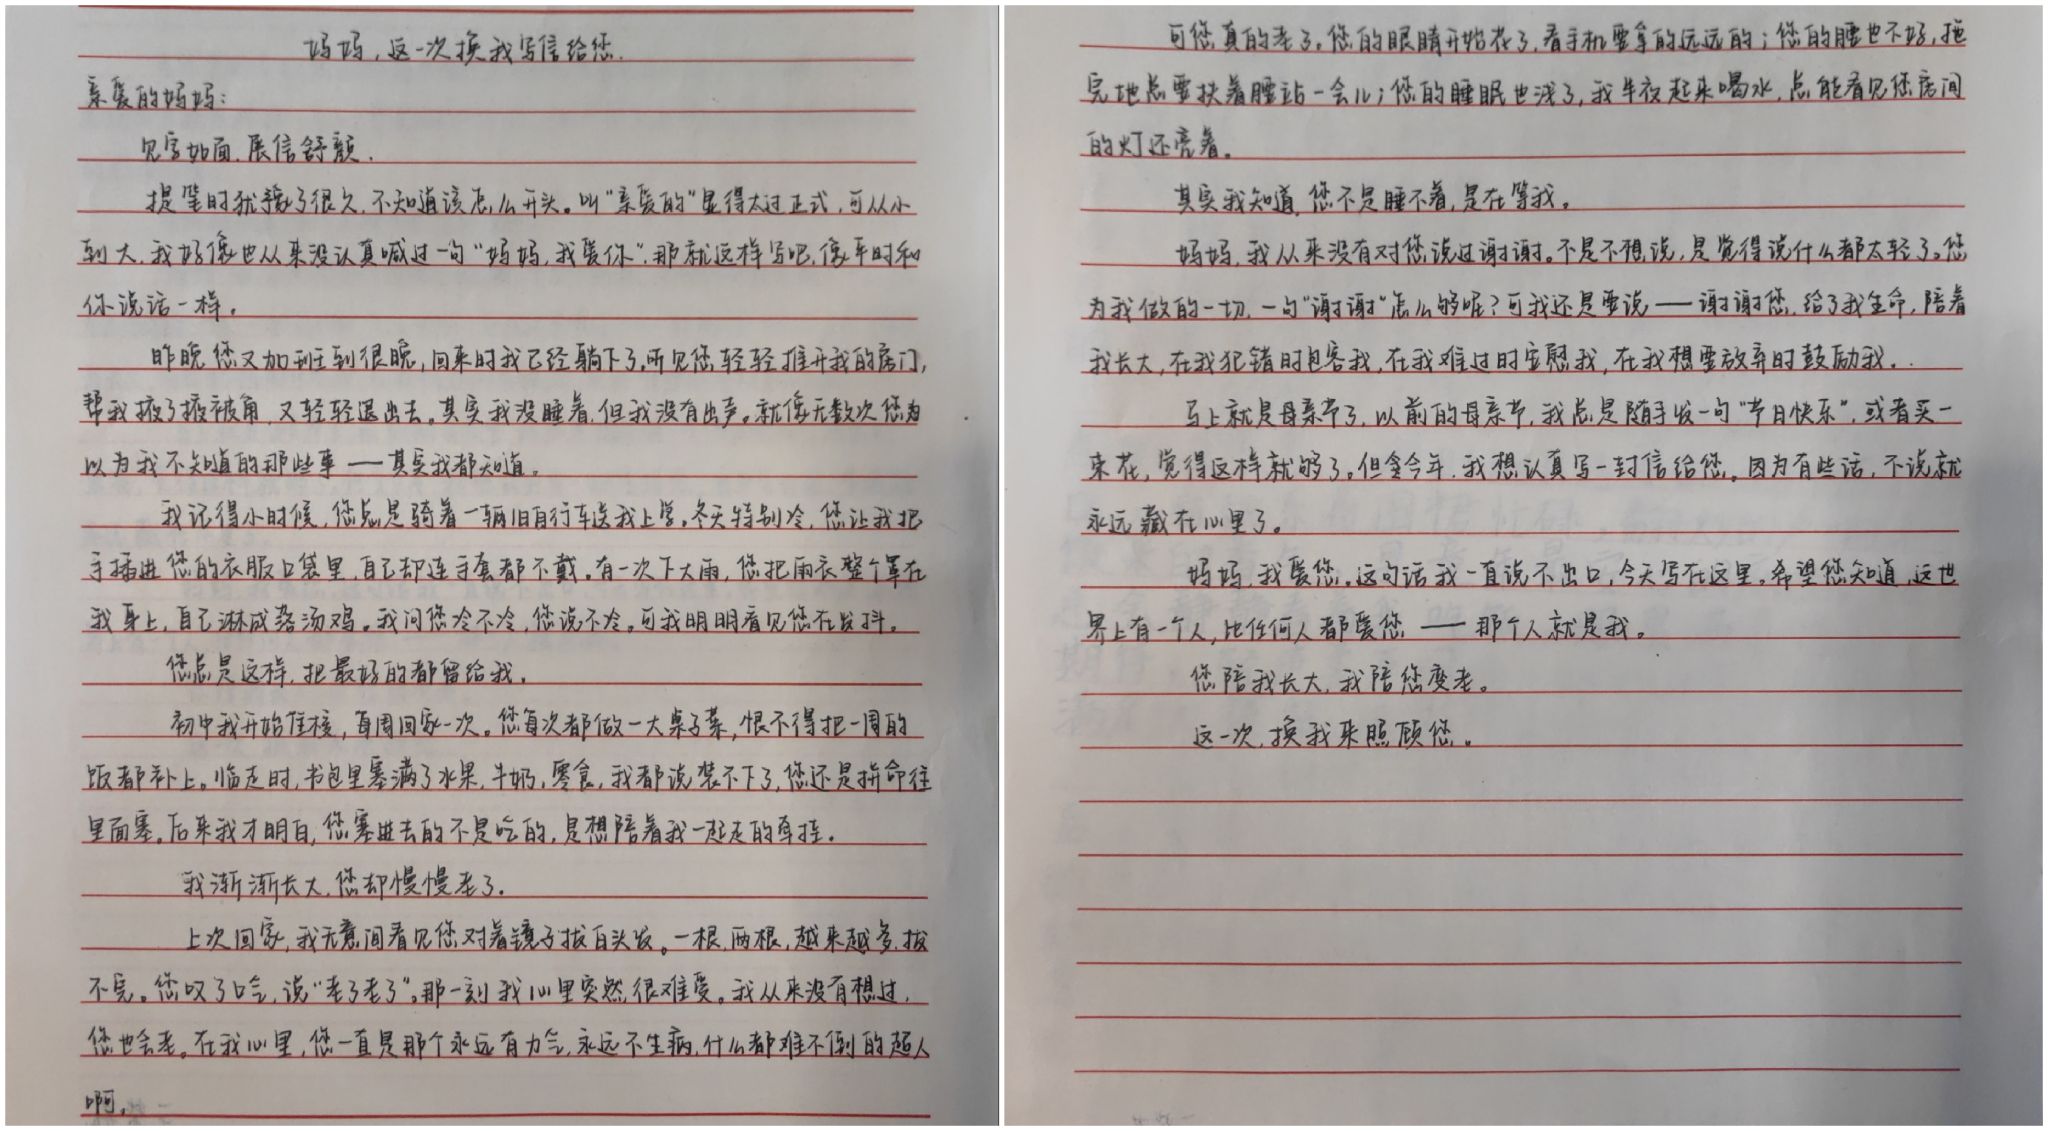 妈妈,这一次换我写信给您.
亲爱的妈妈:
见字如面,展信舒颜.
提笔时犹豫了很久,不知道该怎么开头。叫“亲爱的”显得太过正式,可从小
到大,我好像也从来没认真喊过一句“妈妈,我爱你”.那就这样写吧,像平时和
你说话一样。
昨晚您又加班到很晚,回来时我已经躺下了,听见您轻轻推开我的房门,
帮我掖了掖被角,又轻轻退出去。其实我没睡着,但我没有出声。就像无数次您为
以为我不知道的那些事——其实我都知道。
我记得小时候,您总是骑着一辆旧自行车送我上学。冬天特别冷,您让我把
手插进您的衣服口袋里,自己却连手套都不戴。有一次下大雨,您把雨衣整个罩在
我身上,自己淋成落汤鸡。我问您冷不冷,您说不冷。可我明明看见您在发抖。
您总是这样,把最好的都留给我。
初中我开始住校,每周回家一次。您每次都做一大桌子菜,恨不得把一周的
饭都补上。临走时,书包里塞满了水果,牛奶,零食,我都说装不下了,您还是拼命往
里面塞。后来我才明白,您塞进去的不是吃的,是想陪着我一起走的牵挂.
我渐渐长大,您却慢慢老了.
上次回家,我无意间看见您对着镜子拔白头发。一根,两根,越来越多,拔
不完。您叹了口气,说“老了老了”。那一刻我心里突然很难受。我从来没有想过,
您也会老。在我心里,您一直是那个永远有力气,永远不生病,什么都难不倒的超人
啊。
可您真的老了。您的眼睛开始花了,看手机要拿的远远的;您的腰也不好,拖
完地总要扶着腰站一会儿;您的睡眠也浅了,我半夜起来喝水,总能看见您房间
的灯还亮着。
其实我知道,您不是睡不着,是在等我。
妈妈,我从来没有对您说过谢谢。不是不想说,是觉得说什么都太轻了。您
为我做的一切,一句“谢谢”怎么够呢?可我还是要说——谢谢您,给了我生命,陪着
我长大,在我犯错时包容我,在我难过时安慰我,在我想要放弃时鼓励我..
马上就是母亲节了,以前的母亲节,我总是随手发一句“节日快乐”,或者买一
束花,觉得这样就够了。但今年,我想认真写一封信给您。因为有些话,不说就
永远藏在心里了。
妈妈,我爱您。这句话我一直说不出口,今天写在这里。希望您知道,这世
界上有一个人,比任何人都爱您——那个人就是我。
您陪我长大,我陪您变老。
这一次,换我来照顾您。